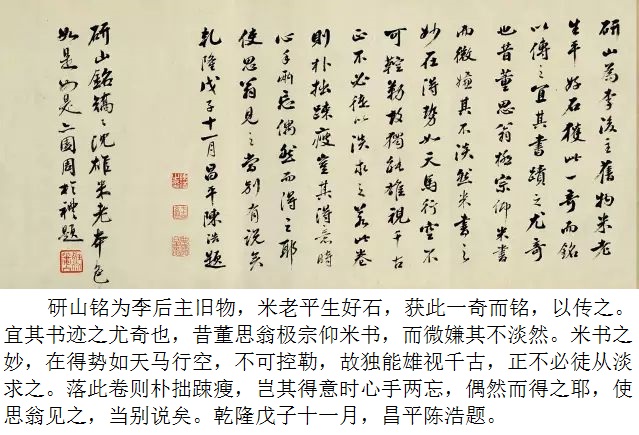 研山為李後主舊物米老
生平好石獲此一奇而銘
以傳之宜其書蹟之尤奇
也昔董思翁極宗仰米書
而微嫌其不淡然米書之
妙在得勢如天馬行空不
可鞚勒故獨能雄視千古
正不必徒以淡求之若此卷
則朴拙疎瘦豈其得意時
心手兩忘偶然而得之耶
使思翁見之當別有說矣
乾隆戊子十一月昌平陳浩題
研山銘沈雄米老本色
如是如是亦園周於禮題
研山铭为李后主旧物，米老平生好石，获此一奇而铭，以传之。
宜其书迹之尤奇也，昔董思翁极宗仰米书，而微嫌其不淡然。米书之
妙，在得势如天马行空，不可控勒，故独能雄视千古，正不必徒从淡
求之。落此卷则朴拙踈瘦，岂其得意时心手两忘，偶然而得之耶，使
思翁见之，当别说矣。乾隆戊子十一月，昌平陈浩题。